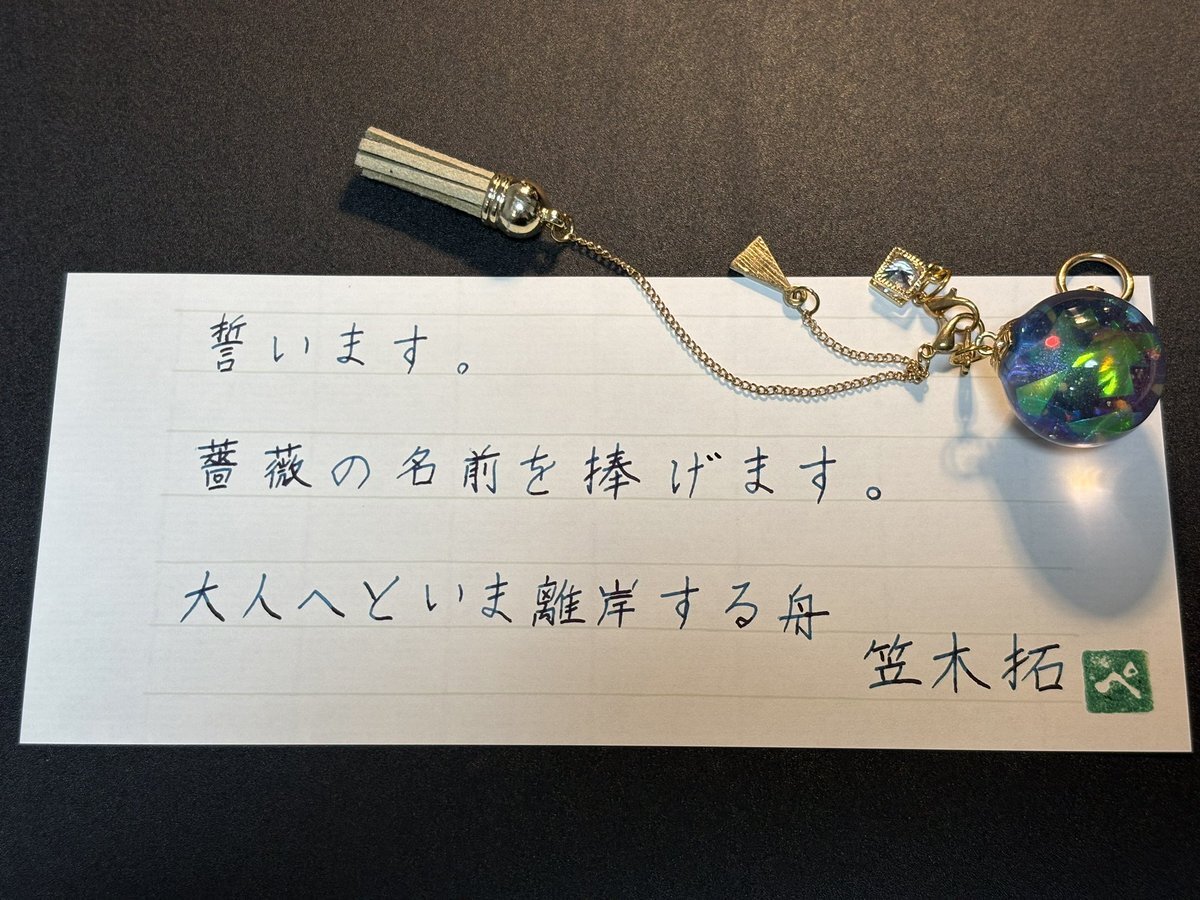 誓います。
薔薇の名前を捧げます。
大人へといま離岸する舟
笠木拓
ぺ